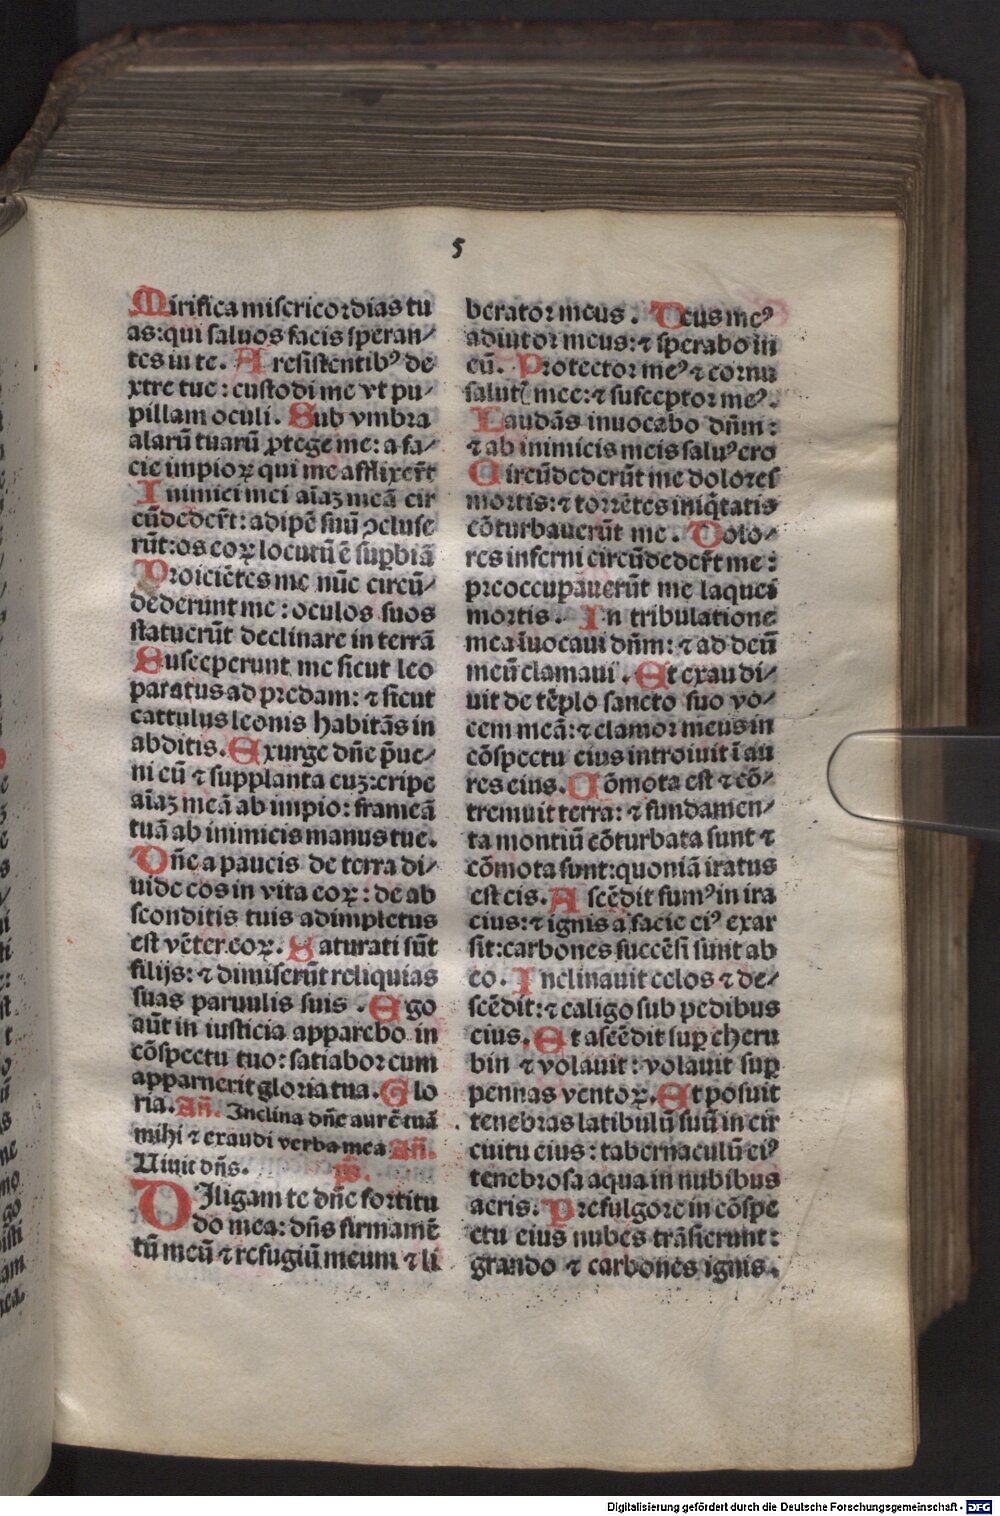 5
Mirifica misericordias tu
as:qui saluos facis speran⸗
tes in te. A resistentibꝰ de
xtre tue : custodi me vt pu⸗
pillam oculi. Sub vmbra
alarū tuarū ꝓtege me: a fa⸗
cie impioꝝ qui me afflixer̄t
Inimici mei aīaꝫ meā cir
cūdeder̄t: adipē suū ↄcluse
rūt:os eoꝝ locutū ē suꝑbiā
Proiciētes me nūc circū⸗
dederunt me : oculos suos
statuerūt declinare in terrā
Susceperunt me sicut leo
paratus ad predam: ⁊ sicut
cattulus leonis habitās in
abditis. Exurge dn̄e p̄ue⸗
ni eū ⁊ supplanta euꝫ:eripe
aīaꝫ meā ab impio: frameā
tuā ab inimicis manus tue.
Dn̄e a paucis de terra di⸗
uide eos in vita eoꝝ : de ab
sconditis tuis adimpletus
est vēter eoꝝ. Saturati sūt
filijs: ⁊ dimiserūt reliquias
suas paruulis suis . Ego
aūt in iusticia apparebo in
cōspectu tuo: satiabor cum
apparuerit gloria tua. Glo
ria. Añ. Inclina dn̄e aurē tuā
mihi ⁊ exaudi verba mea Añ.
Viuit dn̄s. ps.
DIligam te dn̄e fortitu
do mea: dn̄s firmamē
tū meū ⁊ refugiū meum ⁊ li
berator meus . Deus meꝰ
adiutor meus: ⁊ sperabo in
eū. Protector meꝰ ⁊ cornu
salutꝭ mee: ⁊ susceptor meꝰ.
Laudās inuocabo dn̄m :
⁊ ab inimicis meis saluꝰ ero
Circūdederūt me dolores
mortis: ⁊ torrētes iniq̄tatis
cōturbauerūt me . Dolo⸗
res inferni circūdeder̄t me :
preoccupauerūt me laquei
mortis . In tribulatione
mea īuocaui dn̄m: ⁊ ad deū
meū clamaui . Et exaudi⸗
uit de tēplo sancto suo vo⸗
cem meā: ⁊ clamor meus in
cōspectu eius introiuit ī au
res eius. Cōmota est ⁊ cō⸗
tremuit terra: ⁊ fundamen⸗
ta montiū cōturbata sunt ⁊
cōmota sunt:quoniā iratus
est eis. Ascēdit fumꝰ in ira
eius: ⁊ ignis a facie eiꝰ exar
sit:carbones succēsi sunt ab
eo. Inclinauit celos ⁊ de⸗
scēdit: ⁊ caligo sub pedibus
eius. Et ascēdit suꝑ cheru
bin ⁊ volauit : volauit suꝑ
pennas ventoꝝ. Et posuit
tenebras latibulū suū in cir
cuitu eius : tabernaculū eiꝰ
tenebrosa aqua in nubibus
aeris. Prefulgore in cōspe
ctu eius nubes trāsierunt :
grando ⁊ carbones ignis.
Digitalisierung gefördert durch die Deutsche Forschungsgemeinschaft - DFG